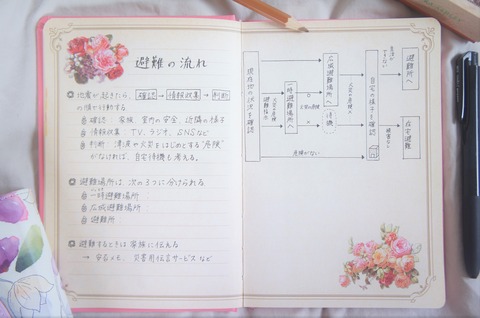 避難の流れ
地震が起きたら、確認→情報収集→判断
の順で行動する
確認：家族、室内の安全、近隣の様子
情報収集：TV、ラジオ、SNSなど
判断：津波や火災をはじめとする"危険"
がなければ、自宅待機も考える。
避難場所は、次の3つに分けられる
一時避難場所
広域避難場所
避難所
避難するときは家族に伝える
→ 安否メモ、災害用伝言サービスなど
現在地の状況を確認
火災の危険
避難指示
一時避難場所へ
火災の危険
広域避難場所へ
待機
火災の危険×
自宅の様子を確認
生活ができない
避難所へ
被害なし
在宅避難
危険がない